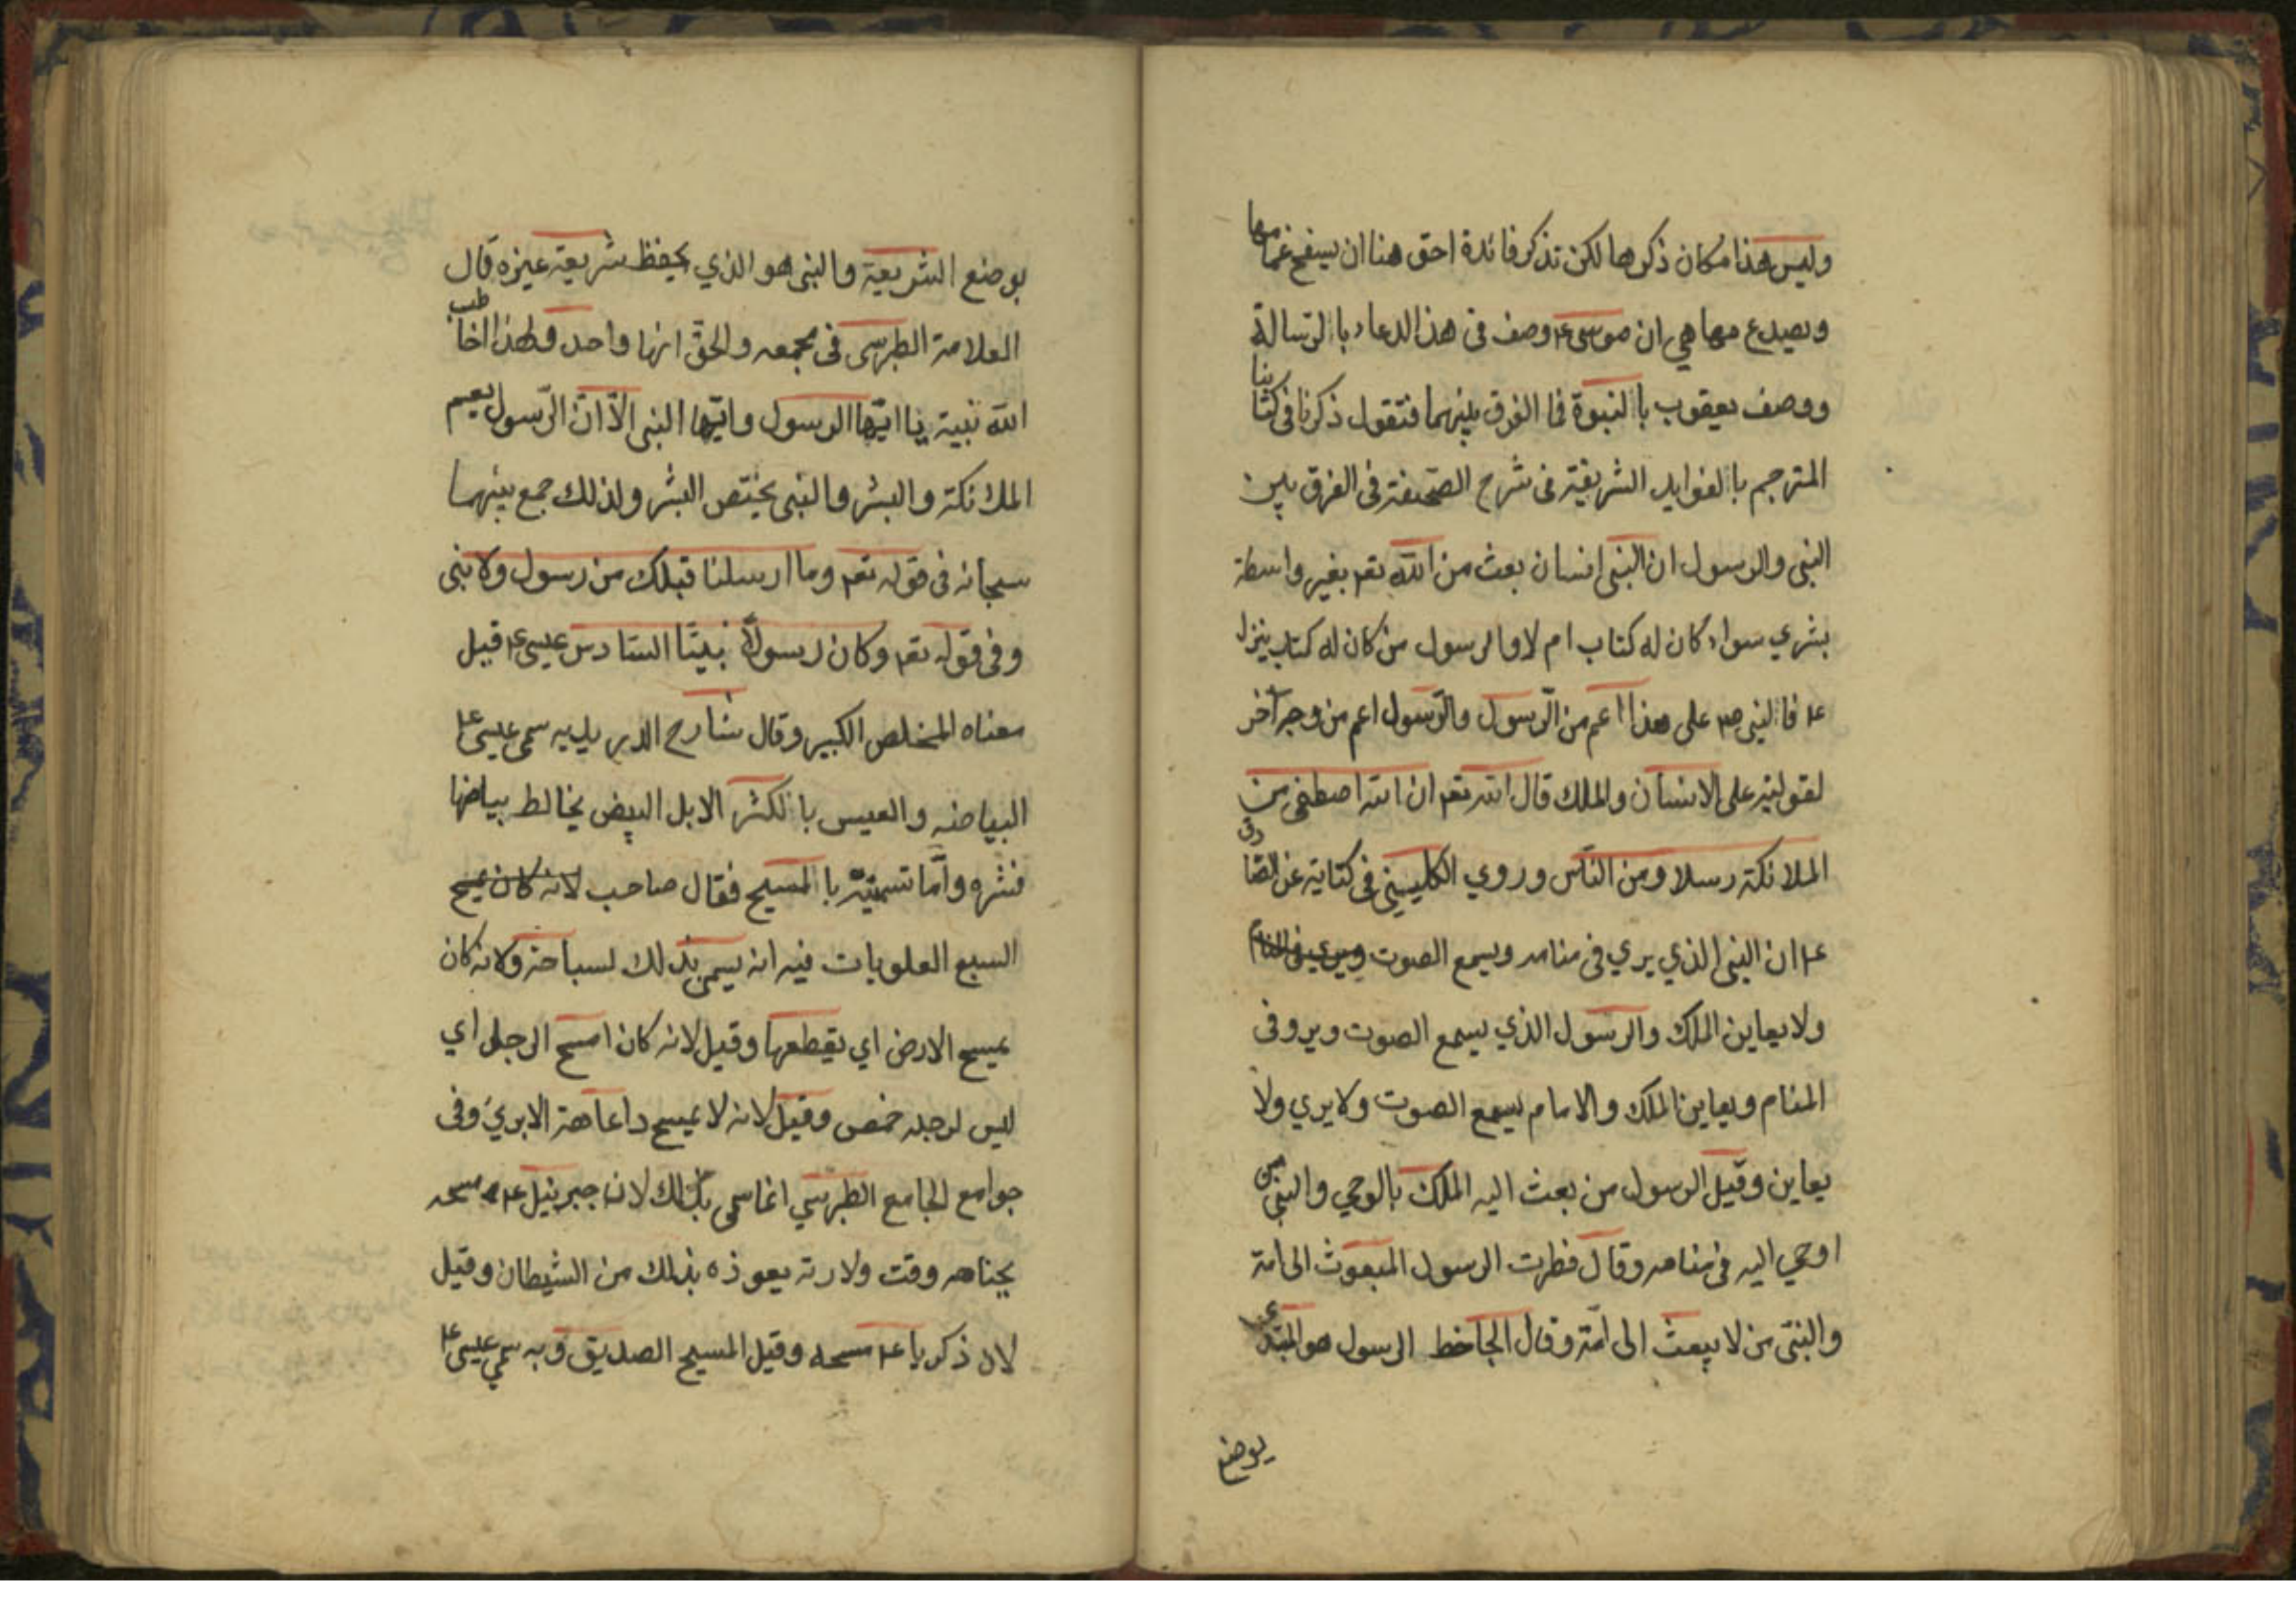 وليس هذا مكان ذكرها لكن تذكر فائدة احق هنا ان يسفح غمامها
ويصدع مهاهي ان موسى ع وصف في هذا الدعاء بالرسالة
ووصف يعقوب بالنبوة فما الفرق بينهما فنقول ذكرنا في كتابنا
المترجم بالفوايد الشريفة في شرح الصحيفة في الفرق بين
النبي والرسول ان النبي انسان بعث من الله تع بغير واسطة
بشري سواء كان له كتاب ام لا والرسول من كان له كتاب ينزل
ع فالنبي ص على هذا اعم من الرسول والرسول اعم من وجه آخر
لقوليته على الانسان والملك قال الله تع ان الله اصطفى من
الملائكة رسلا ومن الناس وروي الكليني في كتابه عن الصادق
ع ان النبي الذي يري في منامه ويسمع الصوت ويري في المنام
ولا يعاين الملك والرسول الذي يسمع الصوت ويرو في
المنام ويعاين الملك والامام يسمع الصوت ولا يري ولا
يعاين وقيل الرسول من بعث اليه الملك بالوحي والنبي من
اوحي اليه في منامه وقال قطرب الرسول المبعوث الى امة
والنبي من لا يبعث الى امة وقال الجاحظ الرسول هو المبتدي
بوضع
بوضع الشريعة والنبي هو الذي يحفظ شريعة غيره قال
العلامة الطبرسي في مجمعه والحق انها واحد ولهذا اخاطب
الله نبيه يا ايها الرسول وايها النبي الا ان الرسول يعم
الملائكة والبشر والنبي يختص البشر ولذلك جمع بينهما
سبحانه في قوله تع وما ارسلنا قبلك من رسول ولا نبي
وفي قوله تع وكان رسولا نبيا السادس عيسى ع قيل
معناه المخلص الكبير وقال شارح الدريديه سمى عيسى ع
البياضه والعيس بالكثر الابل البيض يخالط بياضها
شقره واما تسميته بالمسيح فقال صاحب لانه كان يمسح
السبع العلويات فيه انه يسمى بذلك لسباحته ولانه كان
يمسح الارض اي يقطعها وقيل لانه كان امسح الرجل اي
ليس لرجله خمص وقيل لانه لا يمسح ذا عاهة الا بري وفي
جوامع الجامع الطبرسي انما سمى بذلك لان جبرئيل ع مسحه
بجناحه وقت ولادته يعوذه بذلك من الشيطان وقيل
لان ذكريا ع مسحه وقيل المسيح الصديق وبه سمي عيسى ع